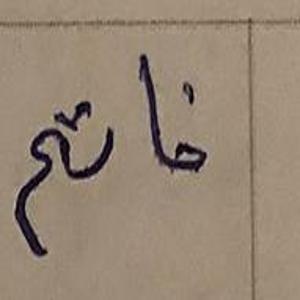 خاتم